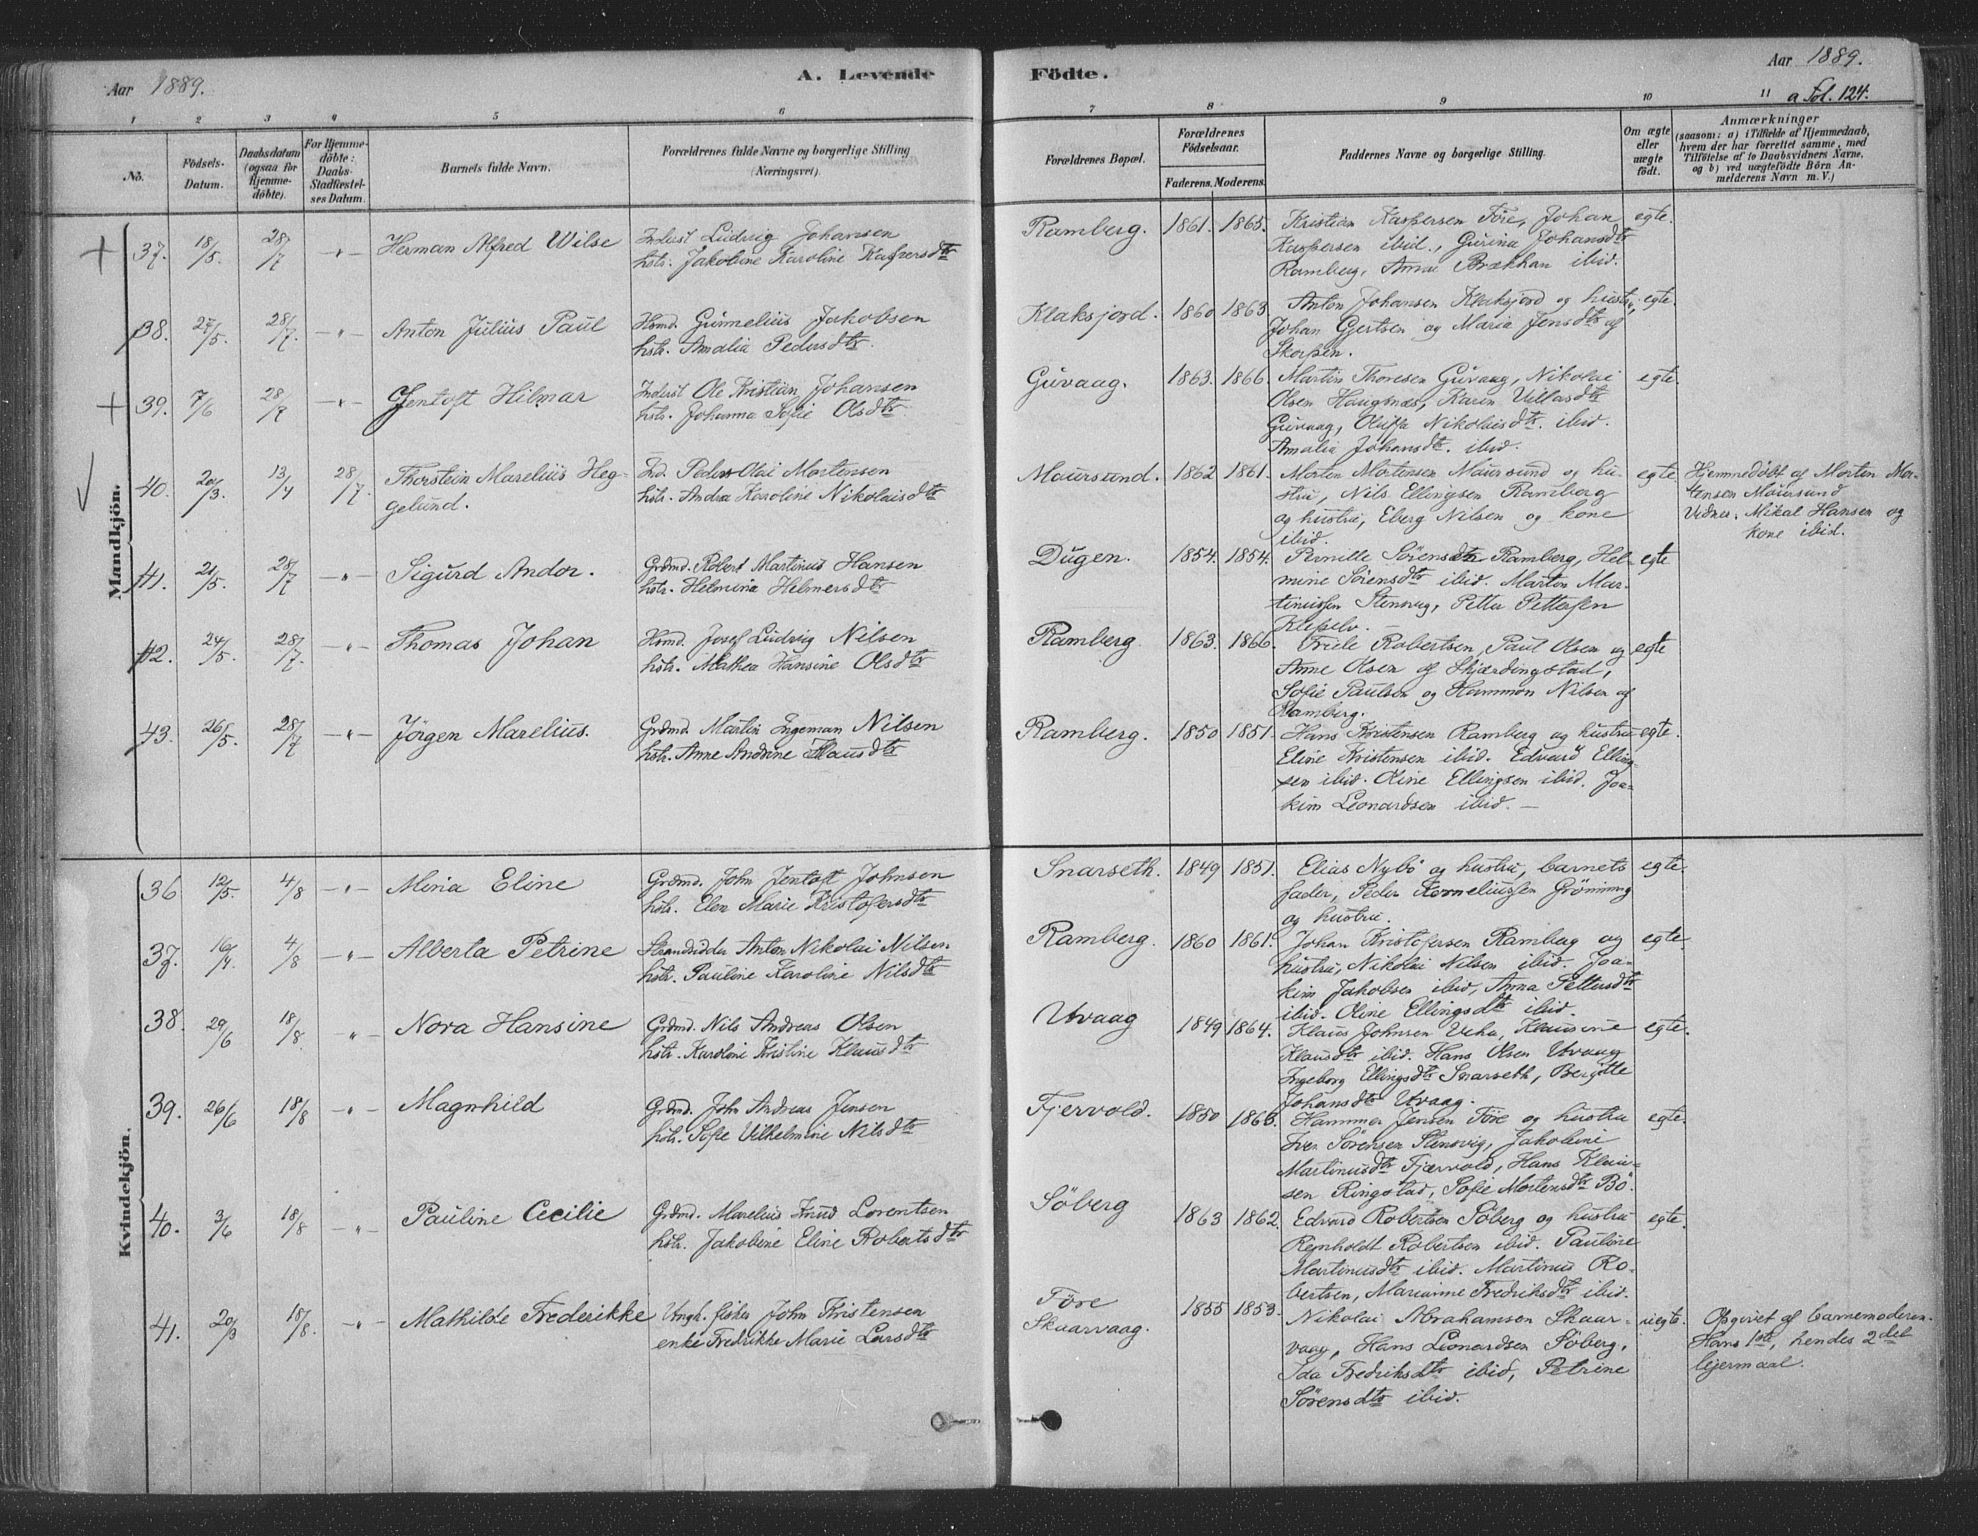 Aar 1889.
A. Levende
Födte.
Aar 1889.
a Fol. 124.
1 2 3 4 5 6 7 8 9 10 11
No.
Födsels-Datum.
Daabsdatum (ogsaa for Hjemmedöbte).
For Hjemmedöbte: Daabs-Stadfæstelses Datum.
Barnets fulde Navn.
Forældrenes fulde Navne og borgerlige Stilling (Næringsvei).
Forældrenes Bopæl.
Forældrenes Födselsaar.
Faderens. Moderens.
Faddernes Navne og borgerlige Stilling.
Om ægte eller uægte födt.
Anmærkninger
(saasom: a) i Tilfælde af Hjemmedaab, hvem der har forrettet samme, med Tilföielse af to Daabsvidners Navne, og b) ved uægtefödte Börn Anmelderens Navn m. V.)
Mandkjön.
37. 18/5 28/7 -"- Herman Alfred Wilse
Inderst Ludvig Johansen
hstr. Jakobine Karoline Kaspersdtr
Ramberg. 1861. 1865.
Kristian Kaspersen Före, Johan
Kaspersen ibid., Gurina Johansdtr
Ramberg, Anna Brækhan ibid.
egte.
38. 27/5. 28/7. -"- Anton Julius Paul
Hsmd. Gunnelius Jakobsen
hstr. Amalia Pedersdtr.
Klaksjord. 1860 1863.
Anton Johansen Klaksjord og hustru,
Johan Gjertsen og Maria Jensdtr af
Skorpen.
egte.
39. 7/6 28/7 -"- Jentoft Hilmar
Inderst Ole Kristian Johansen
hstr. Johanna Sofie Olsdtr.
Guvaag. 1863. 1866.
Martin Thoresen Guvaag, Nikolai
Olsen Haugsnæs, Karin Villasdtr
Guvaag, Oluffa Nikolaisdtr. ibid.
Amalia Johansdtr. ibid.
egte
40. 20/3. 13/4 28/7. Thorstein Marelius Heg-
gelund.
Ind. Peder Olai Mortensen
hstr. Andrea Karoline Nikolaisdtr
Maursund. 1862 1861.
Morten Mortensen Maursund og hu-
stru, Nils Ellingsen Ramberg
og hustru, Eberg Nilsen og kone
ibid.
egte
Hjemmedöbt af Morten Mor-
tensen Maursund
Vidner: Mikal Hansen og
kone ibid.
41. 21/5. 28/7 -"- Sigurd Andor.
Grdmd. Robert Martinus Hansen
hstr. Helmina Helmersdtr
Dugen. 1854. 1854.
Pernille Sörensdtr Ramberg, Hel-
mine Sörensdtr ibid. Marton Mar-
tinussen Stensvig, Petter Pettersen
egte
42. 24/5. 28/7. -"- Thomas Johan
Hsmd. Josef Ludvig Nilsen
hstr. Mathea Hansine Olsdtr
Ramberg 1863. 1866.
Friele Robertsen, Paul Olsen og
Anne Olsen af Skjærdingstad,
Sofie Paulsen og Hammon Nilsen af
Ramberg.
egte
43. 26/5. 28/7 -"- Jörgen Marelius.
Grdmd. Martin Ingeman Nilsen
hstr. Anne Andrine Klausdtr
Ramberg. 1850 1851.
Hans Kristensen Ramberg og hustru
Eline Kristensen ibid. Edvard Elling-
sen ibid. Oline Ellingsen ibid. Joa-
kim Leonardsen ibid. —
egte.
Kvindekjön.
36 12/5. 4/8 -"- Minia Eline
Grdmd. John Jentoft Johnsen
hstr. Elen Marie Kristofersdtr
Snarseth. 1849 1851.
Elias Nybö og hustru, barnets
fader, Peder Korneliussen Grönning
og hustru.
egte.
37. 16/4. 4/8 -"- Alberta Petrine
Strandsidder Anton Nikolai Nilsen
hstr. Pauline Karoline Nilsdtr
Ramberg. 1860 1861.
Johan Kristofersen Ramberg og
hustru, Nikolai Nilsen ibid. Joa-
kim Jakobsen ibid, Anna Pettersdtr
ibid. Oline Ellingsdtr ibid.
egte.
38. 29/6 18/8. "- Nora Hansine
Grdmd. Nils Andreas Olsen
hstr. Karoline Kristine Klausdtr
Utvaag 1849 1864.
Klaus Johnsen Veha, Klausine
Klausdtr ibid. Hans Olsen Utvaag
Ingeborg Ellingsdtr Snarseth, Bergitte
Johansdtr Utvaag.
egte.
39. 26/6 18/8 "- Magnhild
Grdmd. John Andreas Jensen
hstr. Sofie Vilhelmine Nilsdtr
Fjervold. 1850 1863.
Hammer Jensen Före og hustru
Iver Sörensen Stensvig, Jakobine
Martinusdtr Fjærvold, Hans Klau-
sen Ringstad, Sofie Mortensdtr Bö.
egte.
40. 3/6 18/8 -"- Pauline Cecilie
Grdmd. Marelius Knud Lorentsen
hstr. Jakobine Eline Robertsdtr
Söberg 1863 1862.
Edvard Robertsen Söberg og hustru
Reinholdt Robertsen ibid. Pauline
Martinusdtr ibid. Martinus Ro-
bertsen, Marianne Fredriksdtr ibid.
egte.
41. 20/3 18/8. -"- Mathilde Frederikke
Ungk. fisker John Kristensen
enke Fredrikke Marie Larsdtr
Före
Skaarvaag. 1855 1853.
Nikolai Abrahamsen Skaar-
vaag, Hans Leonardsen Söberg,
Ida Fredriksdtr ibid, Petrine
Sörensdtr ibid.
uegte.
Opgivet af barnemoderen.
Hans 1ste, hendes 2det
leiermaal.